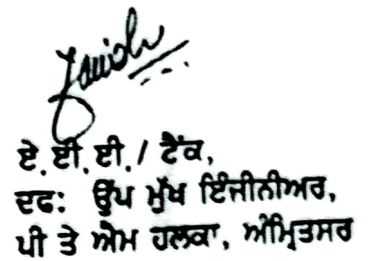 ਏ.ਈ.ਈ./ ਟੈਂਕ,
ਦਫ: ਉੱਪ ਮੁੱਖ ਇੰਜੀਨੀਅਰ,
ਪੀ ਤੇ ਐਮ ਹਲਕਾ, ਅੰਮ੍ਰਿਤਸਰ